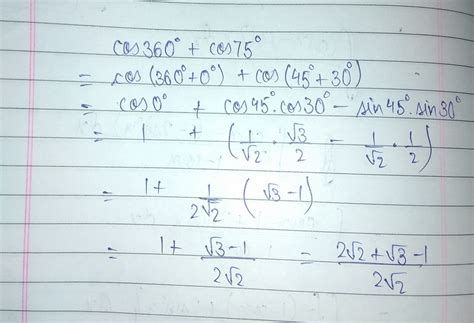 cos360° + cos75°
= cos(360°+0°) + cos(45°+30°)
= cos0° + cos45°.cos30° - sin45°.sin30°
= 1 + (1/√2 . √3/2 - 1/√2 . 1/2)
= 1 + 1/2√2 (√3-1)
= 1 + √3-1/2√2 = 2√2+√3-1/2√2